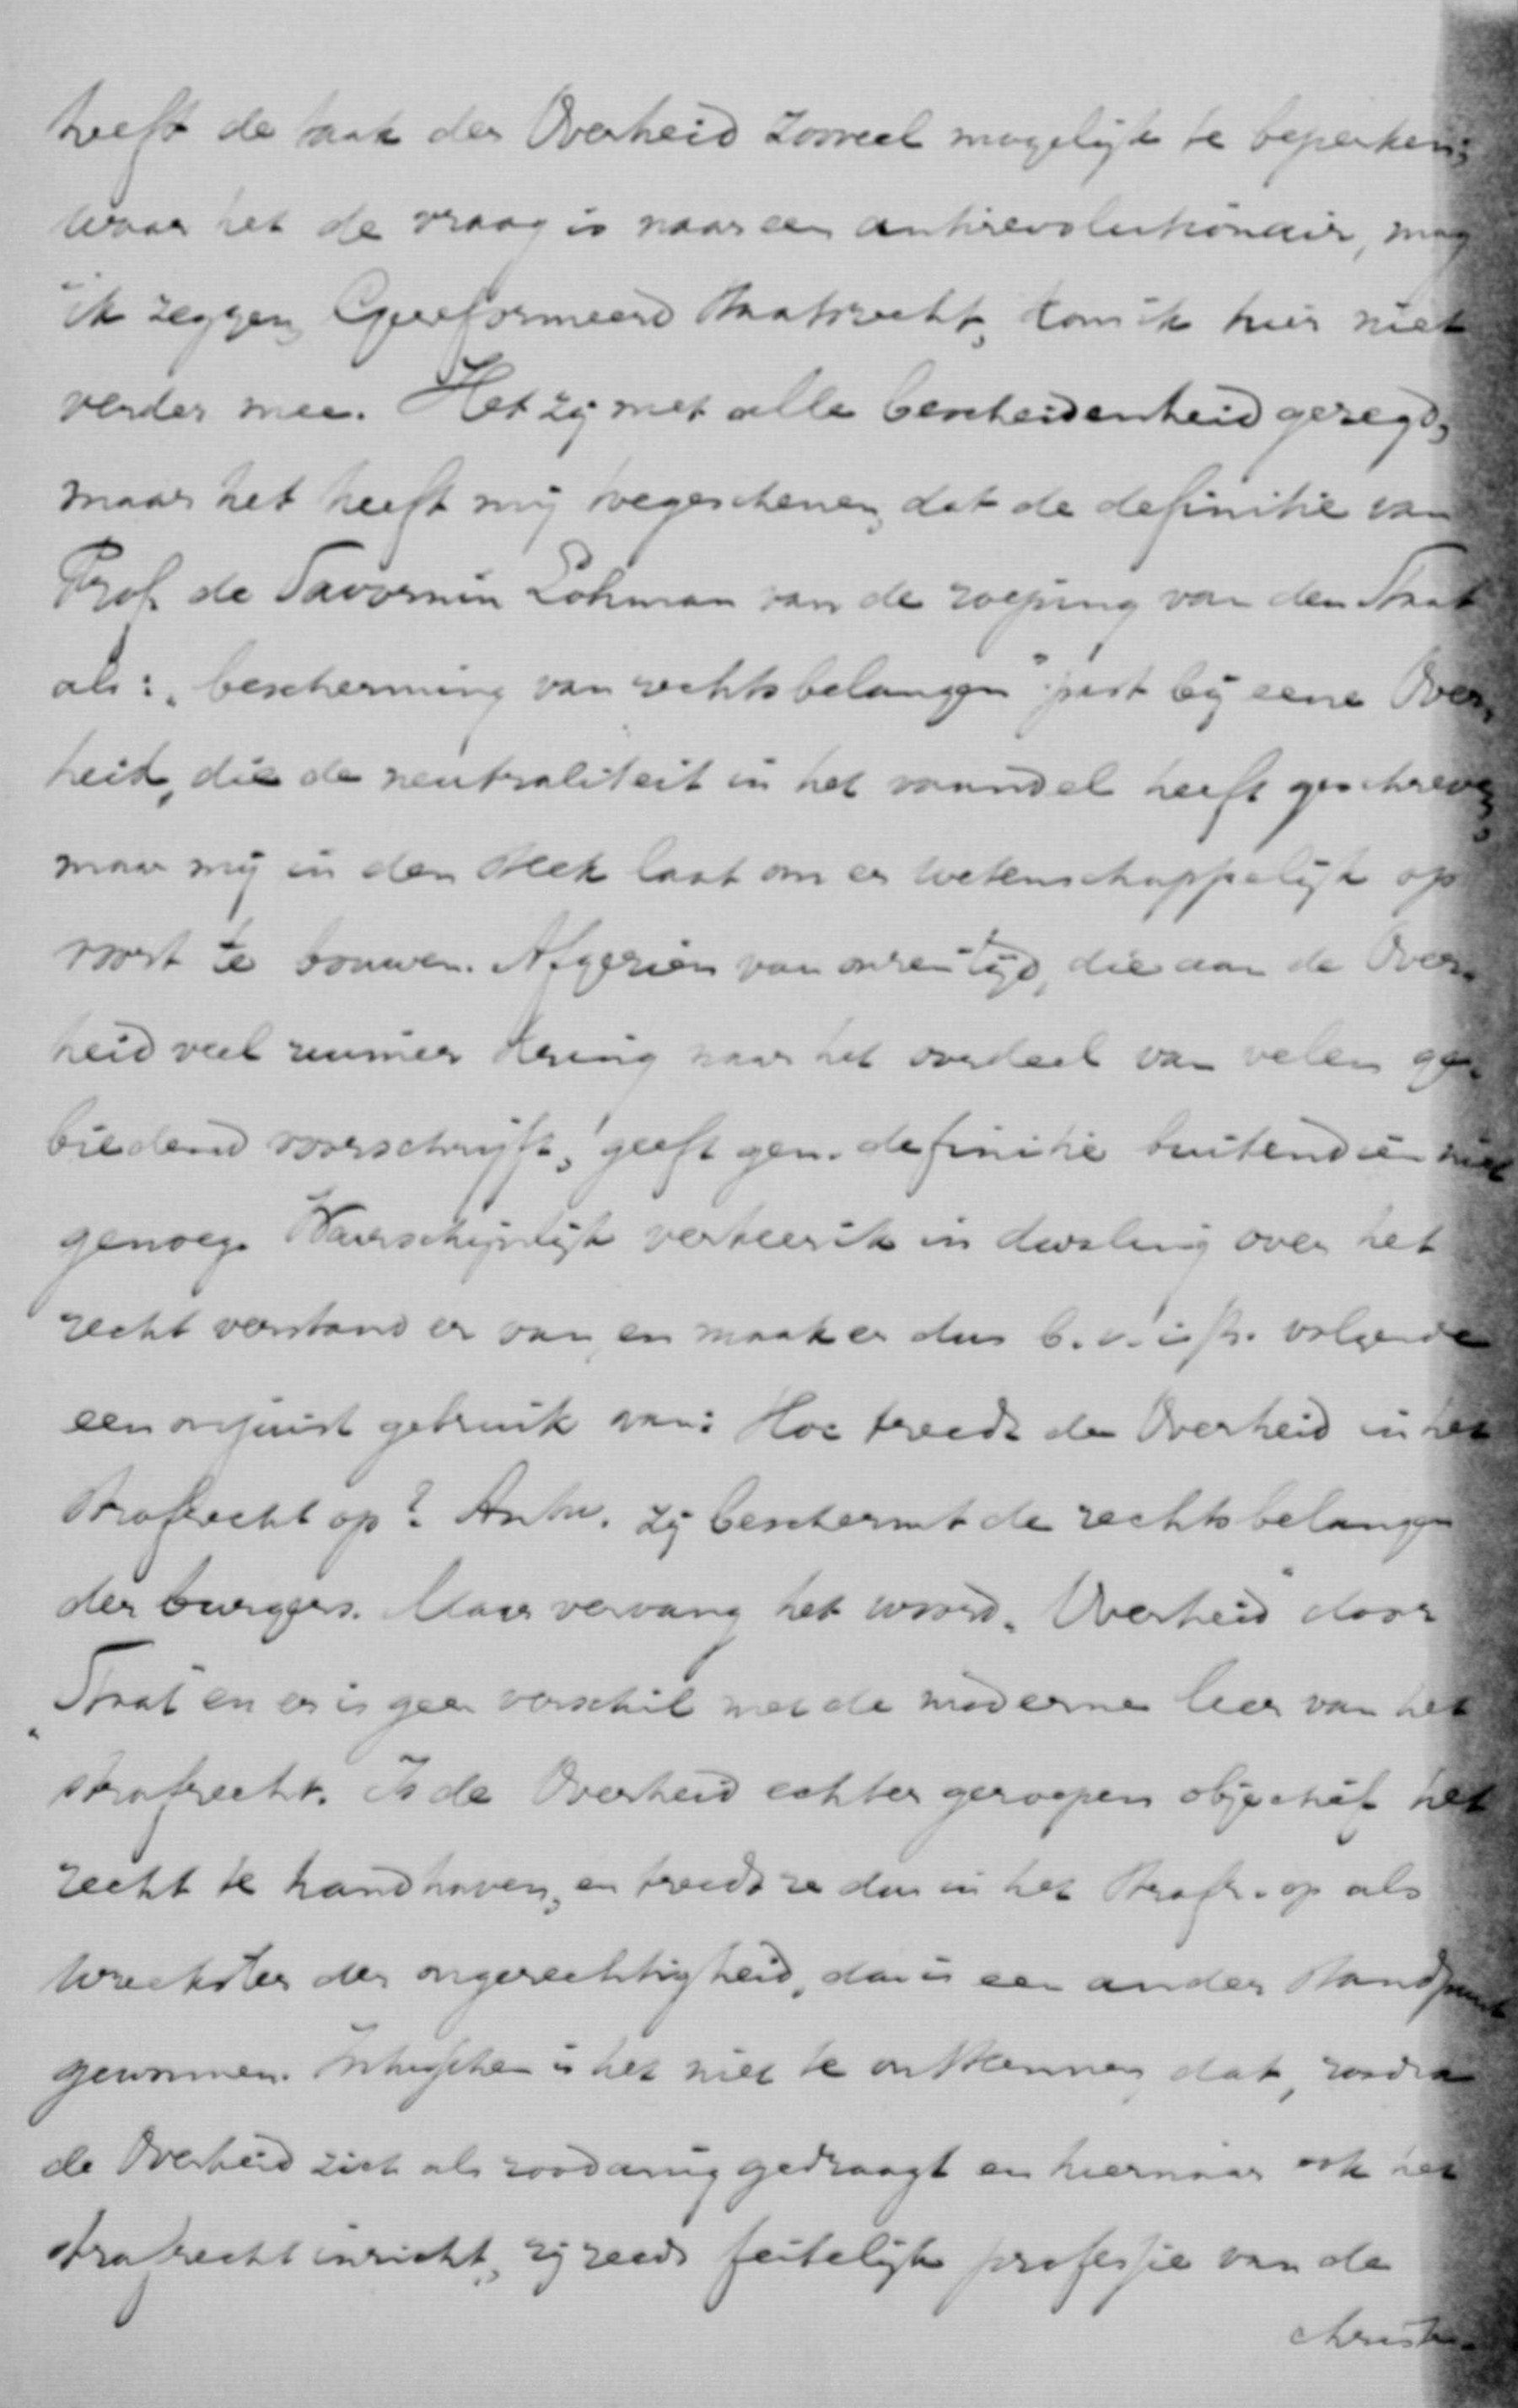 heeft de taak der Overheid zooveel mogelijk te beperken;
waar het de vraag is naar een antirevolutionair, mag
ik zeggen, Gereformeerd Staatsrecht, kom ik hier niet
verder mee. Het zij met alle bescheidenheid gezegd,
maar het heeft mij toegeschenen, dat de definitie van
Prof. de Savornin Lohman van de roeping van den Staat
als: „bescherming van rechtsbelangen" juist bij eene Over-
heid, die de neutraliteit in het vaandel heeft geschreven,
maar mij in den steek laat om er wetenschappelijk op
voort te bouwen. Afgezien van onzen tijd, die aan de Over-
heid veel ruimer kring naar het oordeel van velen ge-
biedend voorschrijft, geeft gen. definitie buitendien niet
genoeg. Waarschijnlijk verkeer ik in dwaling over het
recht verstand er van, en maak er dus b.v. in 't volgende
een onjuist gebruik van: Hoe treedt de Overheid in het
Strafrecht op? Antw. zij beschermt de rechtsbelangen
der burgers. Maar vervang het woord „Overheid" door
„Staat" en er is geen verschil met de moderne leer van het
strafrecht. Is de Overheid echter geroepen objectief het
recht te handhaven, en treedt ze dus in het Strafr. op als
wreekster der ongerechtigheid, dan is een ander standpunt
gewonnen. Intusschen is het niet te ontkennen, dat, zoodra
de Overheid zich als zoodanig gedraagt en hiernaar ook het
strafrecht inricht, zij reeds feitelijk professie van de
christe-